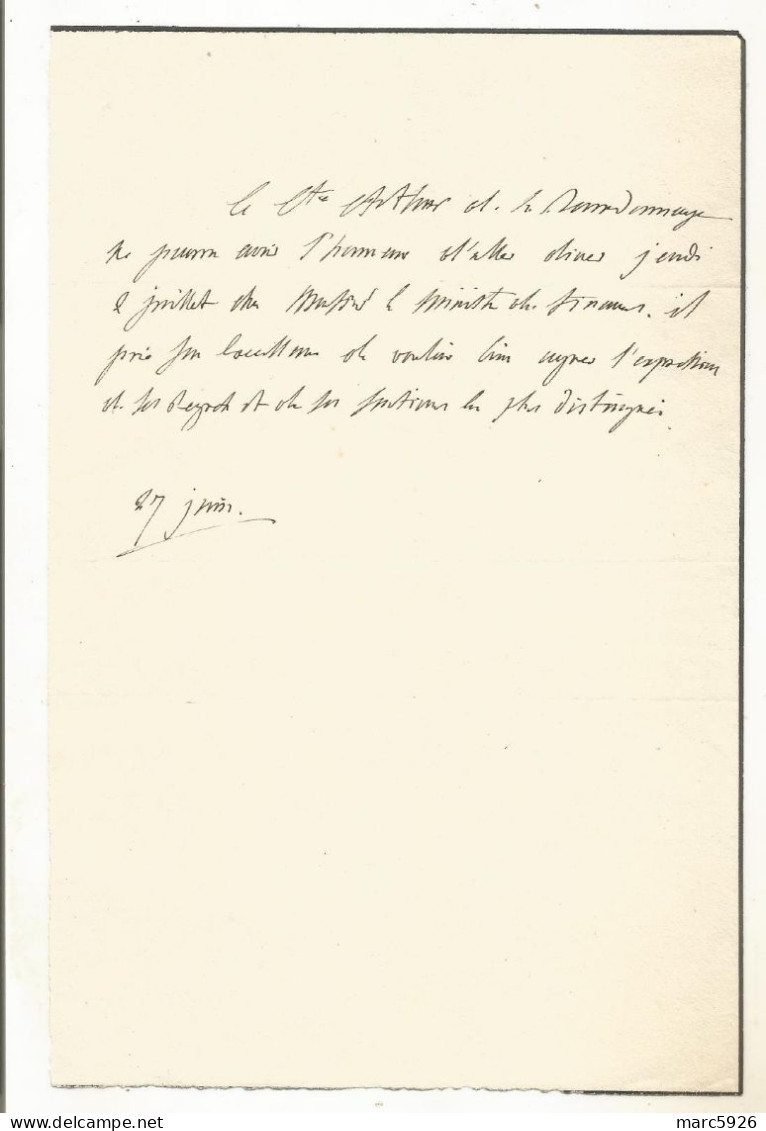 Le Cte Arthur de La Bourdonnaye
ne pourra avoir l'honneur d'aller diner jeudi
2 juillet chez Monsieur le Ministre des finances. il
prie Son Excellence de vouloir bien agréer l'expression
de ses regrets et de ses sentimens les plus distingués.
27 juin.
marc5926